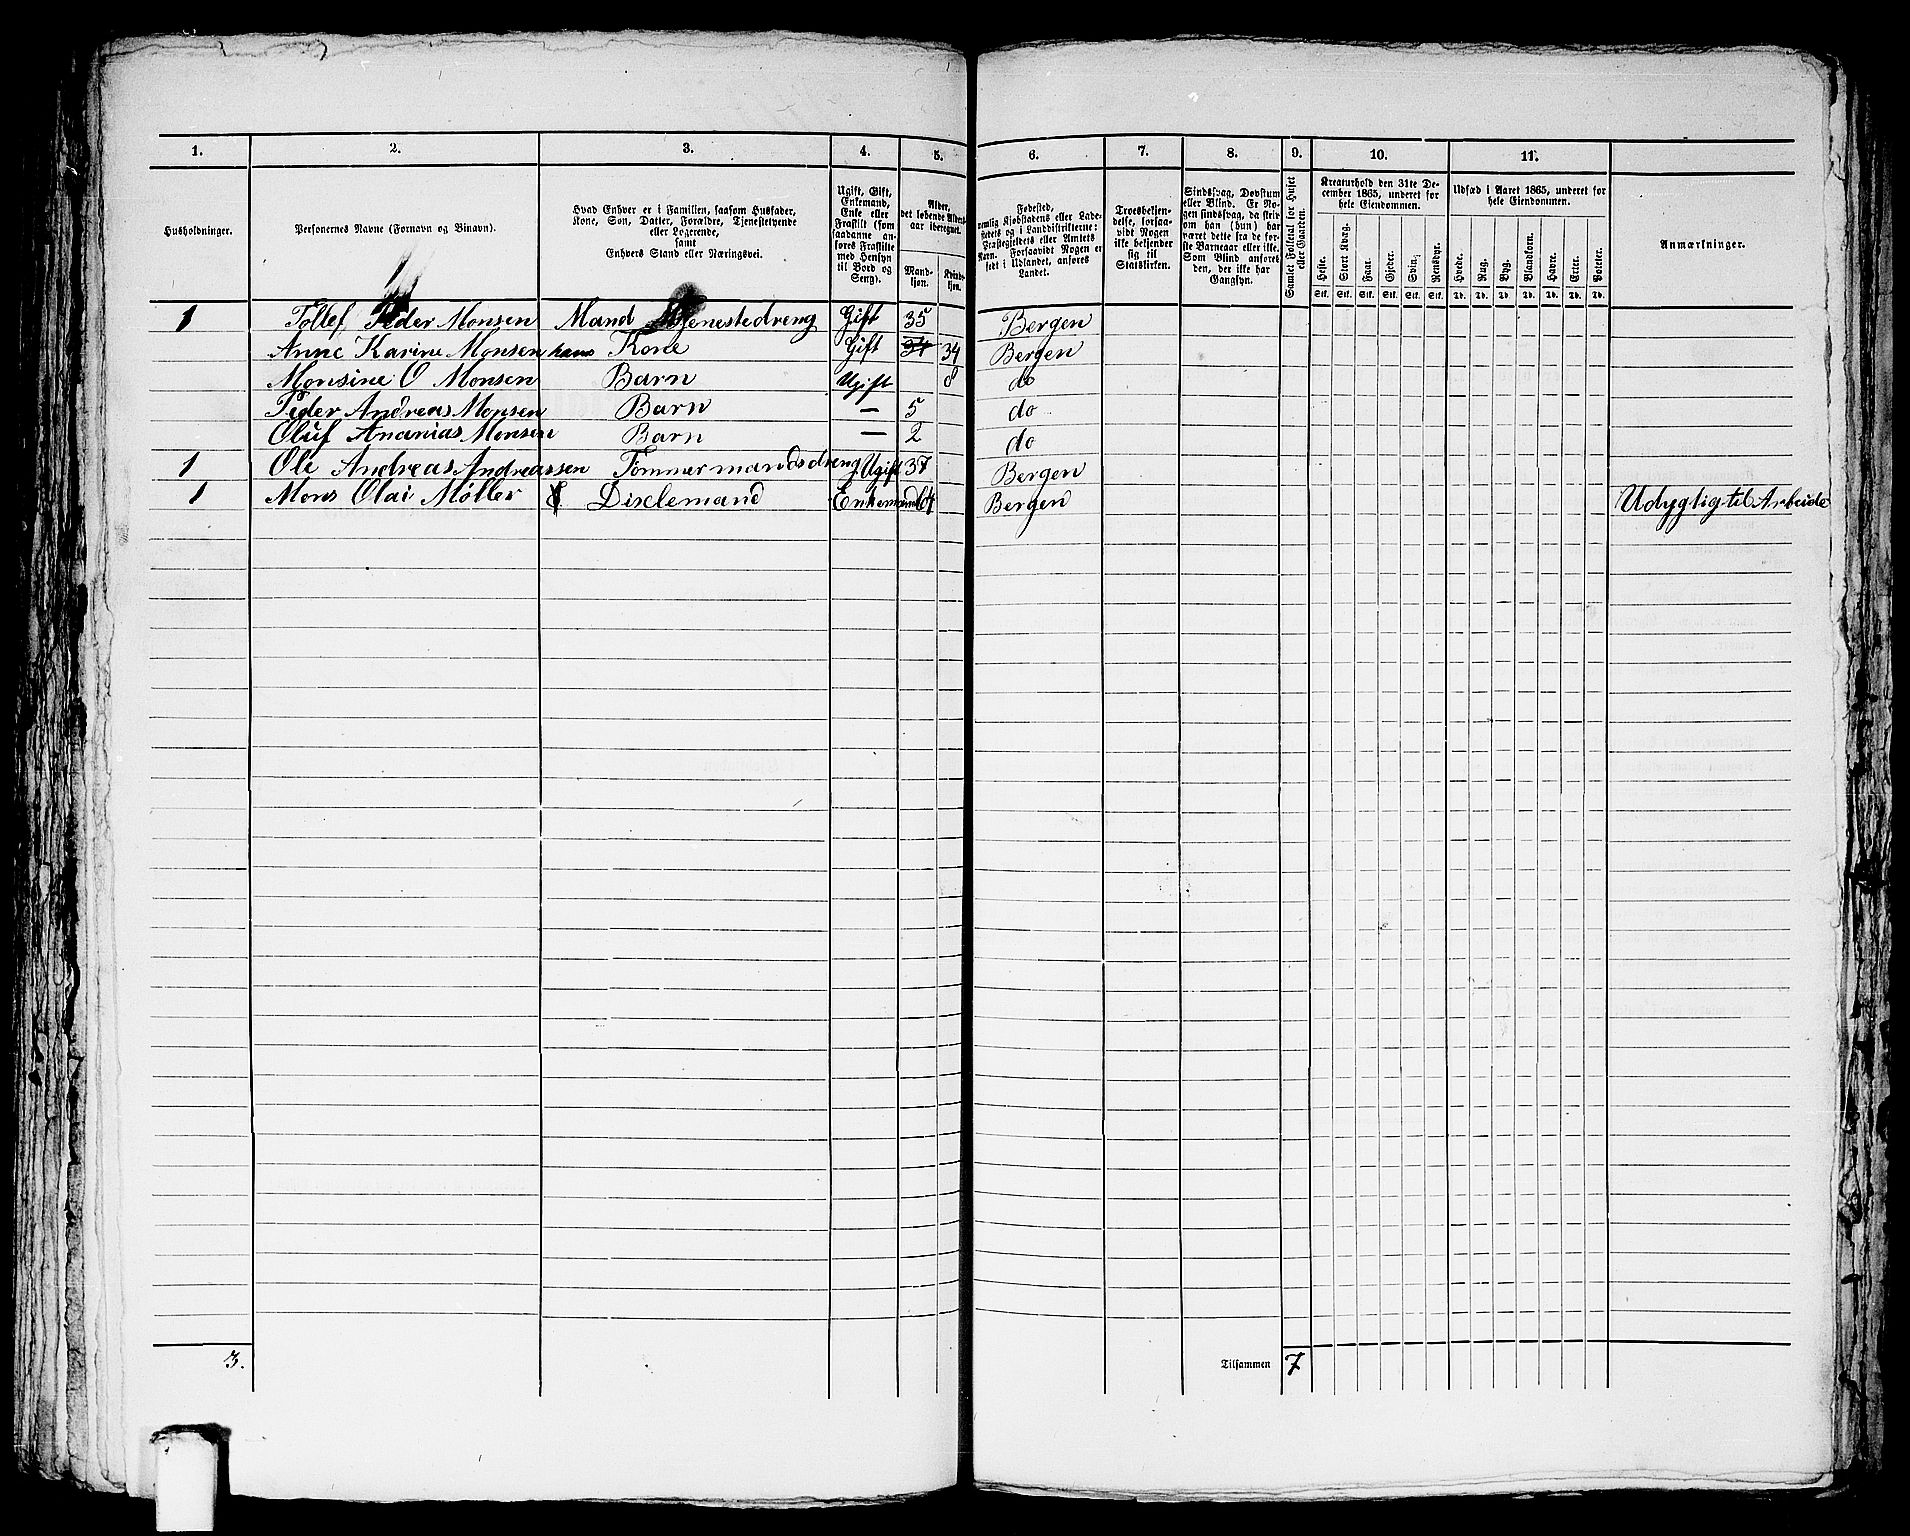 1. 2. 3. 4. 5. 6. 7. 8. 9. 10. 11.
Husholdninger.
Personernes Navne (Fornavn og Binavn).
Hvad Enhver er i Familien, saasom Husfader,
Kone, Søn, Datter, Forældre, Tjenestetyende
eller Logerende,
samt
Enhvers Stand eller Næringsvei.
Ugift, Gift,
Enkemand,
Enke eller
Fraskilt (som
saadanne an-
føres Fraskilte
med Hensyn
til Bord og
Seng).
Alder,
det løbende Alders-
aar iberegnet.
Mand-
kjøn.
Kvind-
kjøn.
Fødested,
nemlig Kjøbstadens eller Lade-
stedets og i Landdistrikterne:
Præstegjeldets eller Amtets
Navn. Forsaavidt Nogen er
født i Udlandet, anføres
Landet.
Troesbekjen-
delse, forsaa-
vidt Nogen
ikke bekjender
sig til
Statskirken.
Sindssvag, Døvstum
eller Blind. Er No-
gen sindssvag, da skriv
om han (hun) har
været dette fra de før-
ste Barneaar eller ikke.
Som Blind ansees
den, der ikke har
Gangsyn.
Samlet Folketal for Huset
eller Gaarden.
Kreaturhold den 31te De-
cember 1865, underet for
hele Eiendommen.
Heste. Stort Kvæg. Faar. Gjeder. Svin. Rensdyr.
Stk. Stk. Stk. Stk. Stk. Stk.
Udsæd i Aaret 1865, underet for
hele Eiendommen.
Hvede. Rug. Byg. Blandkorn. Havre. Erter. Poteter.
Td. Td. Td. Td. Td. Td. Td.
Anmærkninger.
1 Tollef Peder Monsen Mand Tjenestedreng Gift 35 Bergen
Anne Karine Monsen hans Kone Gift 34 34 Bergen
Monsine O Monsen Barn Ugift 8 do
Peder Andreas Monsen Barn — 5 do
Oluf Ananias Monsen Barn — 2 do
1 Ole Andreas Andreassen Tømmermandsdreng Ugift 37 Bergen
1 Mons Olai Møller Dixelemand Enkemand 64 Bergen Udygtig til Arbeide
3. Tilsammen 7